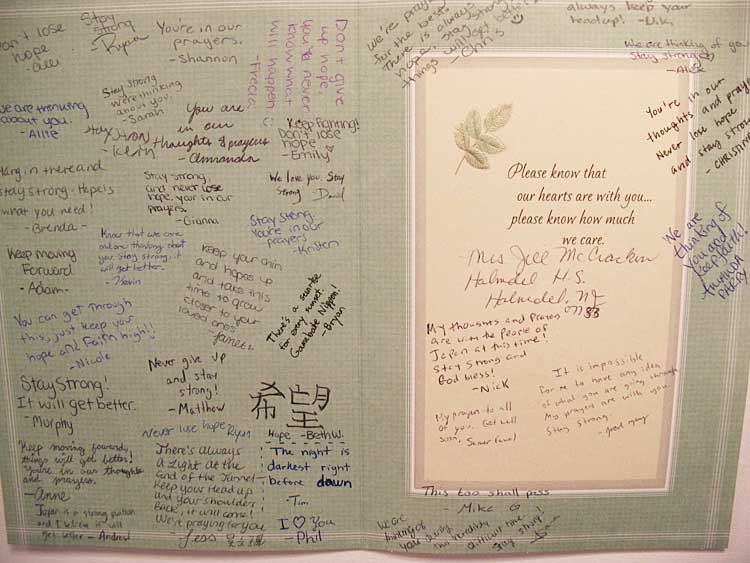 Don't lose
hope
Stay
strong
Ryan
You're in our
prayers.
-Shannon
Don't give
up hope,
you never
know what
will happen.
-Tricia
We are thinking
about you.
- Allie
Stay strong
we're thinking
about you.
- Sarah
Stay strong
-Kevin
You are
in our
thoughts & prayers
- Amanda
Keep fighting!
Don't lose
hope
-Emily
Hang in there and
stay strong. Hope is
what you need!
- Brenda -
Stay strong,
and never lose
hope. your in our
prayers.
-Gianna
We love you. Stay
Strong David
Know that we are
out are thinking about
you stay strong, it
will get better.
- Kevin
Stay strong
You're in our
prayers
- Kristen
Keep moving
Forward
- Adam -
Keep your chin
and hopes up
and take this
time to grow
closer to your
loved ones
There's a sunrise
for every sunset.
Ganabate Nippon!
-Bryan
You can get through
this, just keep your
hope and Faith high!!
- Nicole
Never give up
and stay
strong!
- Matthew
Stay Strong!
It will get better.
- Murphy
希望
Hope - Beth W.
Never lose hope Ryan
Keep moving forward,
things will get better!
You're in our thoughts
and prayers.
-Anne
There's always
a Light at the
End of the Tunnel-
Keep your Head up
and your shoulders
Back, it will come!
We're praying for you
- Jess
The night is
darkest right
before dawn
- Tim
Japan is a strong nation
and I believe it will
get better - Andrew
I ♡ You
- Phil
We're praying
for the best.
There is always
hope. Stay strong
things will get better
- Chris ☺
always keep your
head up! -Miki
We are thinking of you
Stay strong
- Alex
You're in our
thoughts and prayers
Never lose hope
and stay strong
- CHRISTINE
Please know that
our hearts are with you...
please know how much
we care.
Mrs Jill McCracken
Holmdel H.S.
Holmdel, NJ
07733
We are
thinking of
you and
Keep faith!
My thoughts and Prayers
are with the People of
Japan at this time!
Stay Strong and
God bless!
- Nick
It is impossible
for me to have any idea
of what you are going through
My prayers are with you.
Stay strong.
My prayers to all
of you. Get well
soon,
This too shall pass
- Mike G
We are
thinking of
you during
this
difficult time
Stay strong